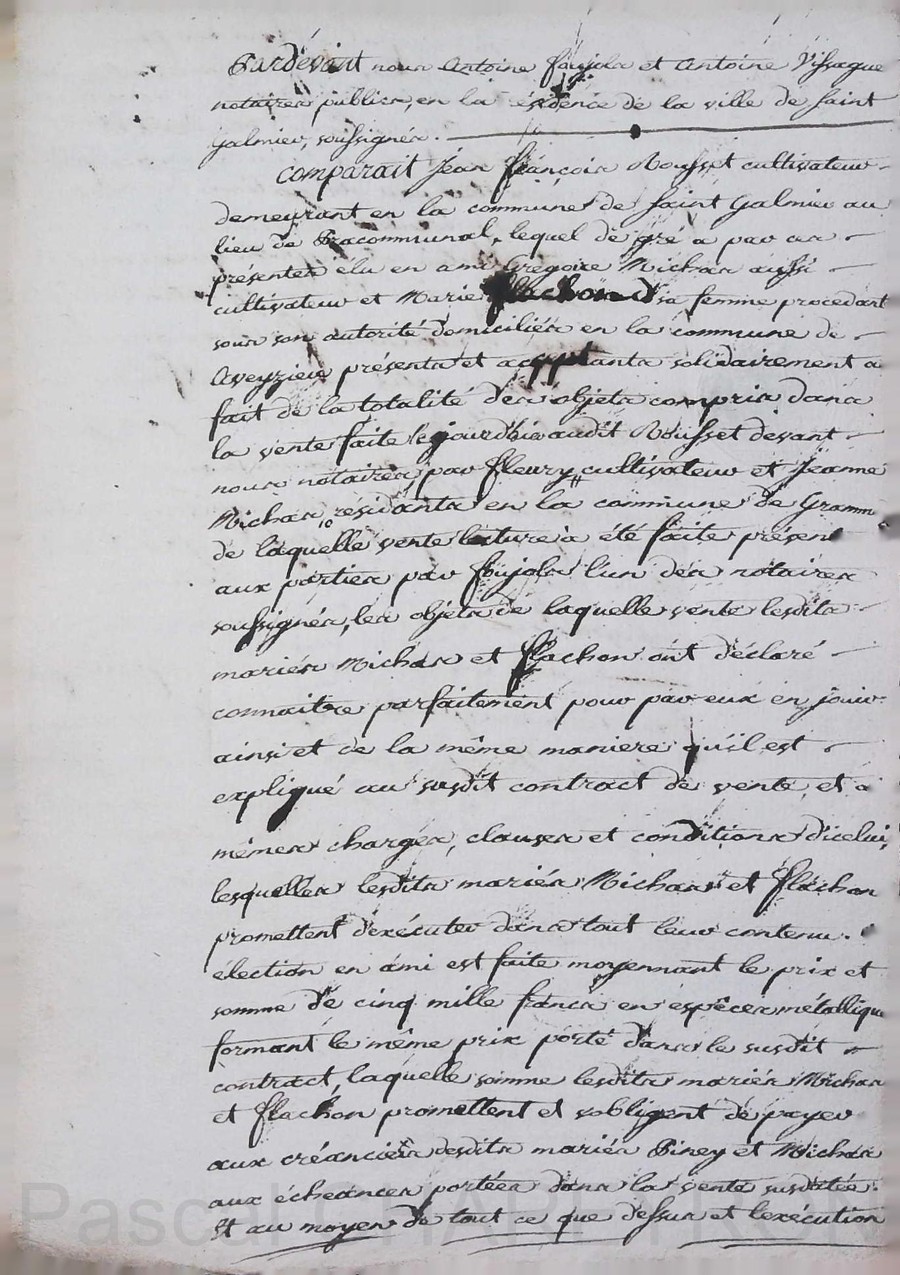 Pardevant nous Antoine foujols et Antoine Vissague
notaires publics, en la résidence de la ville de saint
galmier, soussignés.
Comparait Jean françois Rousset cultivateur
demeurant en la commune de saint galmier au
lieu de Pracommunal, lequel de gré a par ces
présentes élu en ami Gregoire Michas aussi
cultivateur et Marie flachon d sa femme procedant
sous son autorité domiciliés en la commune de
Aveyzieu présents et acceptants solidairement a
fait de la totalité des objets compris dans
la vente faite cejourdhui audit Rousset devant
nous notaires par fleury cultivateur et Jeanne
Michas, résidants en la commune de Gramm
de laquelle vente lecture a été faite présent
aux parties par foujols l'un des notaires
soussignés, les objets de laquelle vente lesdits
mariés Michas et flachon ont déclaré
connaitre parfaitement pour par eux en jouir
ainsi et de la même maniere qu'il est
expliqué au susdit contract de vente et a
mêmes charges, clauses et conditions d'icelui,
lesquelles lesdits mariés Michas et flachon
promettent d'exécuter dans tout leur contenu.
élection en ami est faite moyennant le prix et
somme de cinq mille francs en espèces métallique
formant le même prix porté dans le susdit
contract, laquelle somme lesdits mariés Michas
et flachon promettent et s'obligent de payer
aux créanciers desdits mariés Piney et Michas
aux écheances portées dans la vente susdatée.
Et au moyen de tout ce que dessus et l'exécution
Pascal CHAPETRON